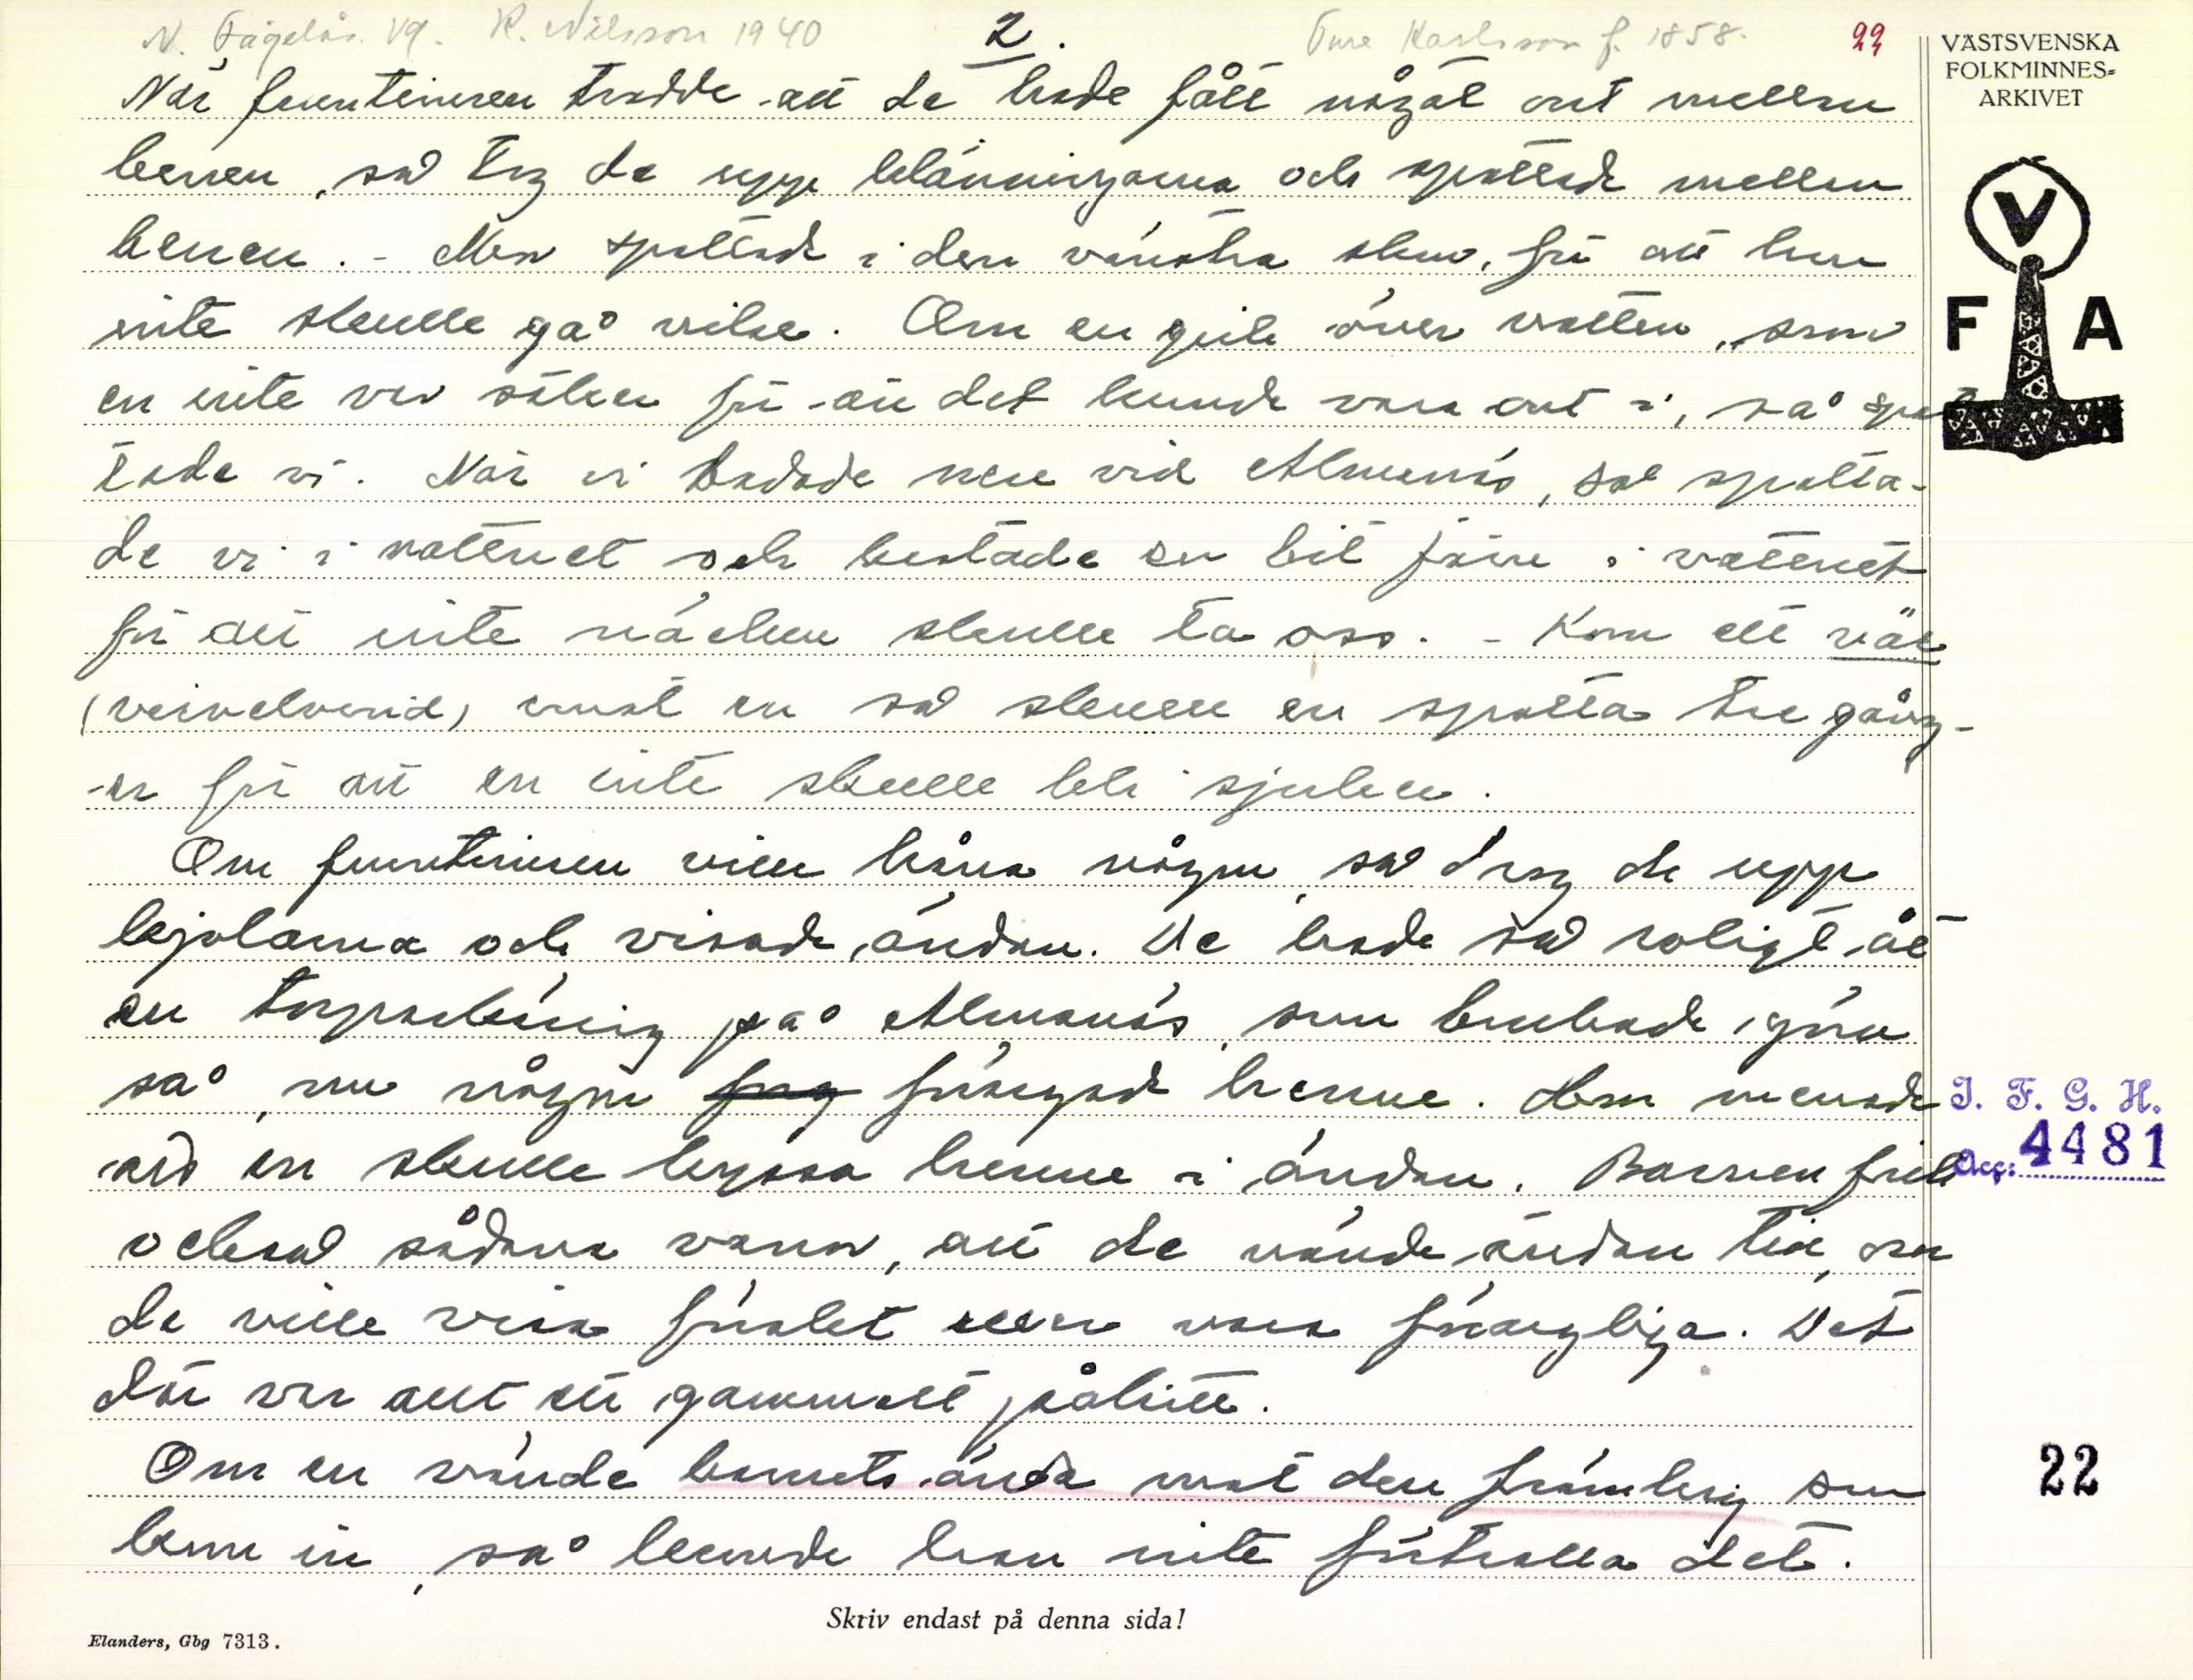 N. Fågelås. Vg. K. Nilsson 1940 2. Ture Karlsson f. 1858. 22
VÄSTSVENSKA
FOLKMINNES-
ARKIVET
V
F A
När fruntimren trodde att de hade fått något ont mellan
benen, så tog de upp klänningarna och spottade mellan
benen. - Men spottade i den vänstra skon, för att hen
inte skulle gå vilse. Om en gick över vatten, som
en inte var säker för att det kunde vara ont i, så spot
tade vi. När vi badade nere vid Almnäs, så spotta-
de vi i vattnet och kastade en bit järn i vattnet
för att inte näcken skulle ta oss. - Kom ett vär
(virvelvind) emot en så skulle en spotta tre gång-
-er för att en inte skulle bli sjuker.
Om fruntimren ville håna någon, så drog de upp
kjolarna och visade ändan. De hade så roligt åt
en torparkäring på Almnäs, som brukade göra
så, om någon förargade henne. Hon menade
att en skulle kyssa henne i ändan. Barnen fick
också sådana vanor, att de vände ändan till, om
de ville visa förakt eller vara förargliga. Det
där var allt ett gammalt påhitt.
Om en vände barnets ända mot den främling som
kom in, så kunde han inte förtrolla det.
J. F. G. H.
Acc: 4481
22
Skriv endast på denna sida!
Elanders, Gbg 7313.